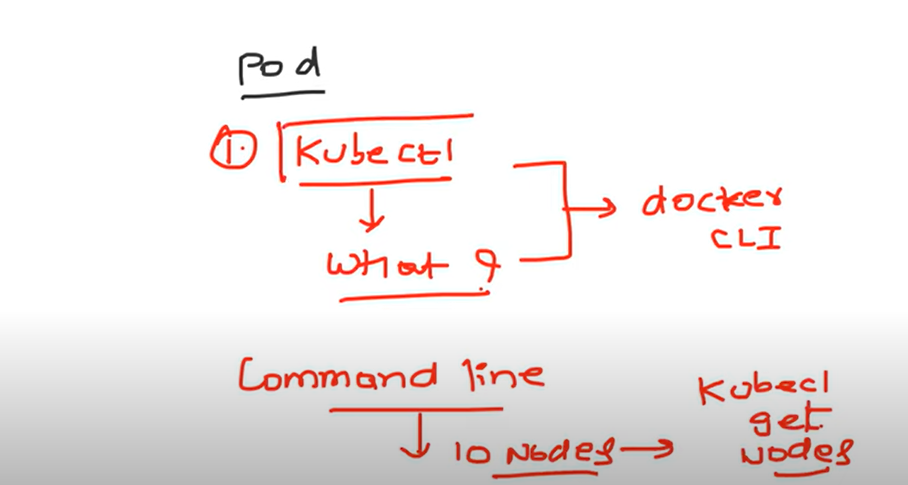 Pod
1. Kubectl
What ?
docker
CLI
Command line
10 Nodes
Kubecl
get
Nodes